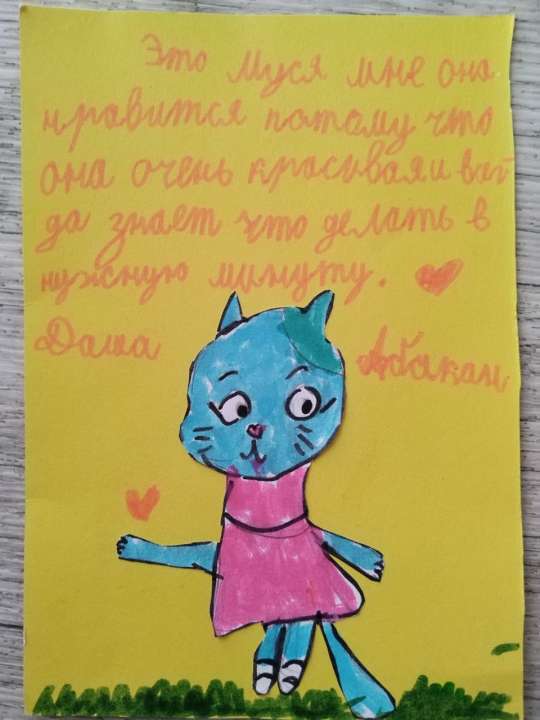 Это Муся мне она
нравится потому что
она очень красивая и все
да знает что делать в
нужную минуту.
Даша
Абакан